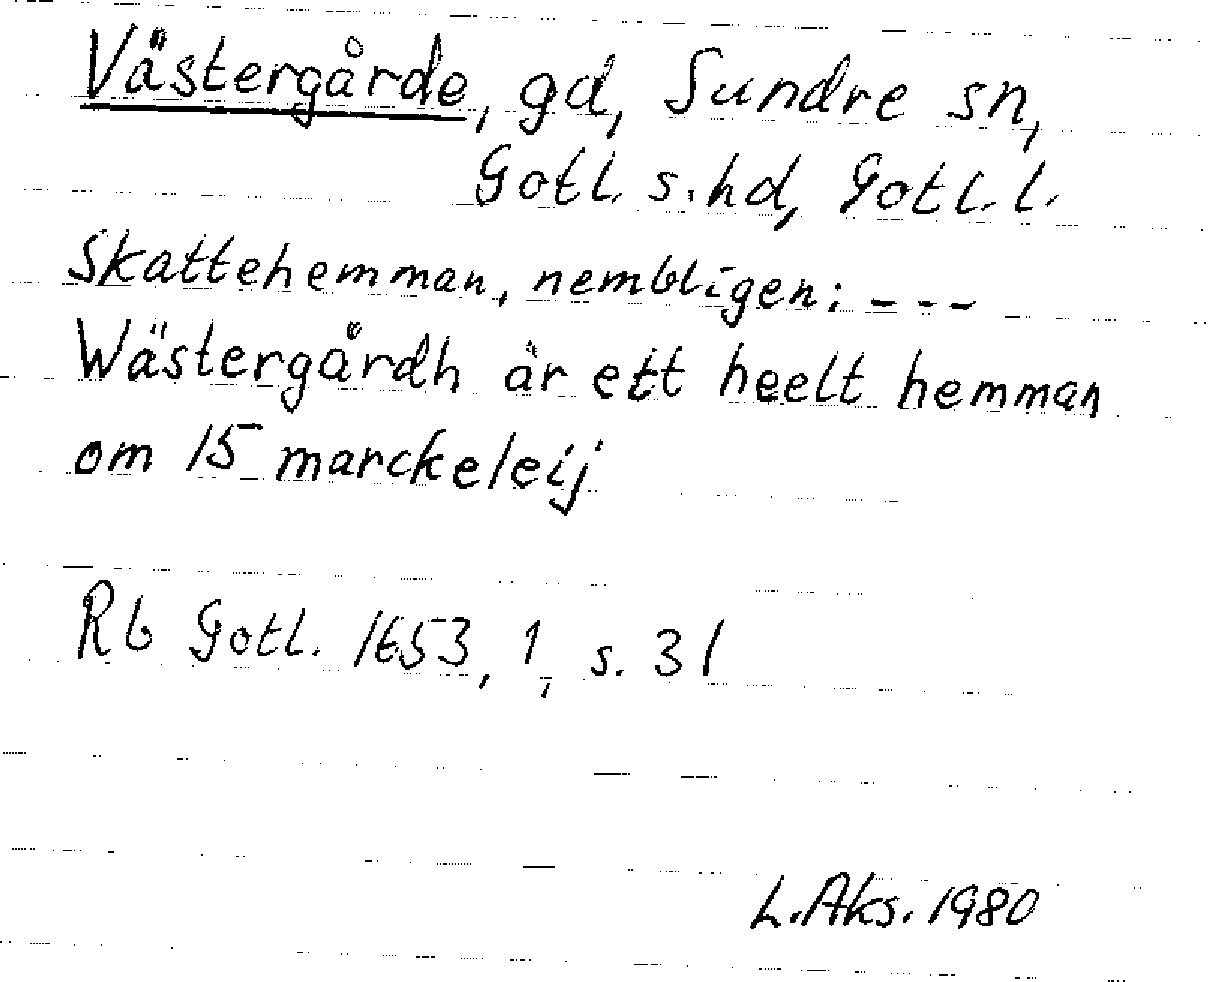 Västergårde, gd, Sundre sn,
Gotl. s. hd, Gotl. l.
Skattehemman, nembligen: - - -
Wästergårdh är ett heelt hemman
om 15 marckeleij
Rb Gotl. 1653, 1, s. 31
L. Aks. 1980